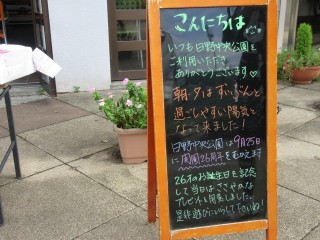 こんにちは
いつも日野中央公園を
ご利用いただき
ありがとうございます♡
朝夕はずいぶんと
過ごしやすい陽気と
なって来ました！
日野中央公園は9月25日
に開園26周年をむかえます
26才のお誕生日を記念
して当日はささやかな
プレゼントを用意しました。
是非遊びにいらして下さいね！